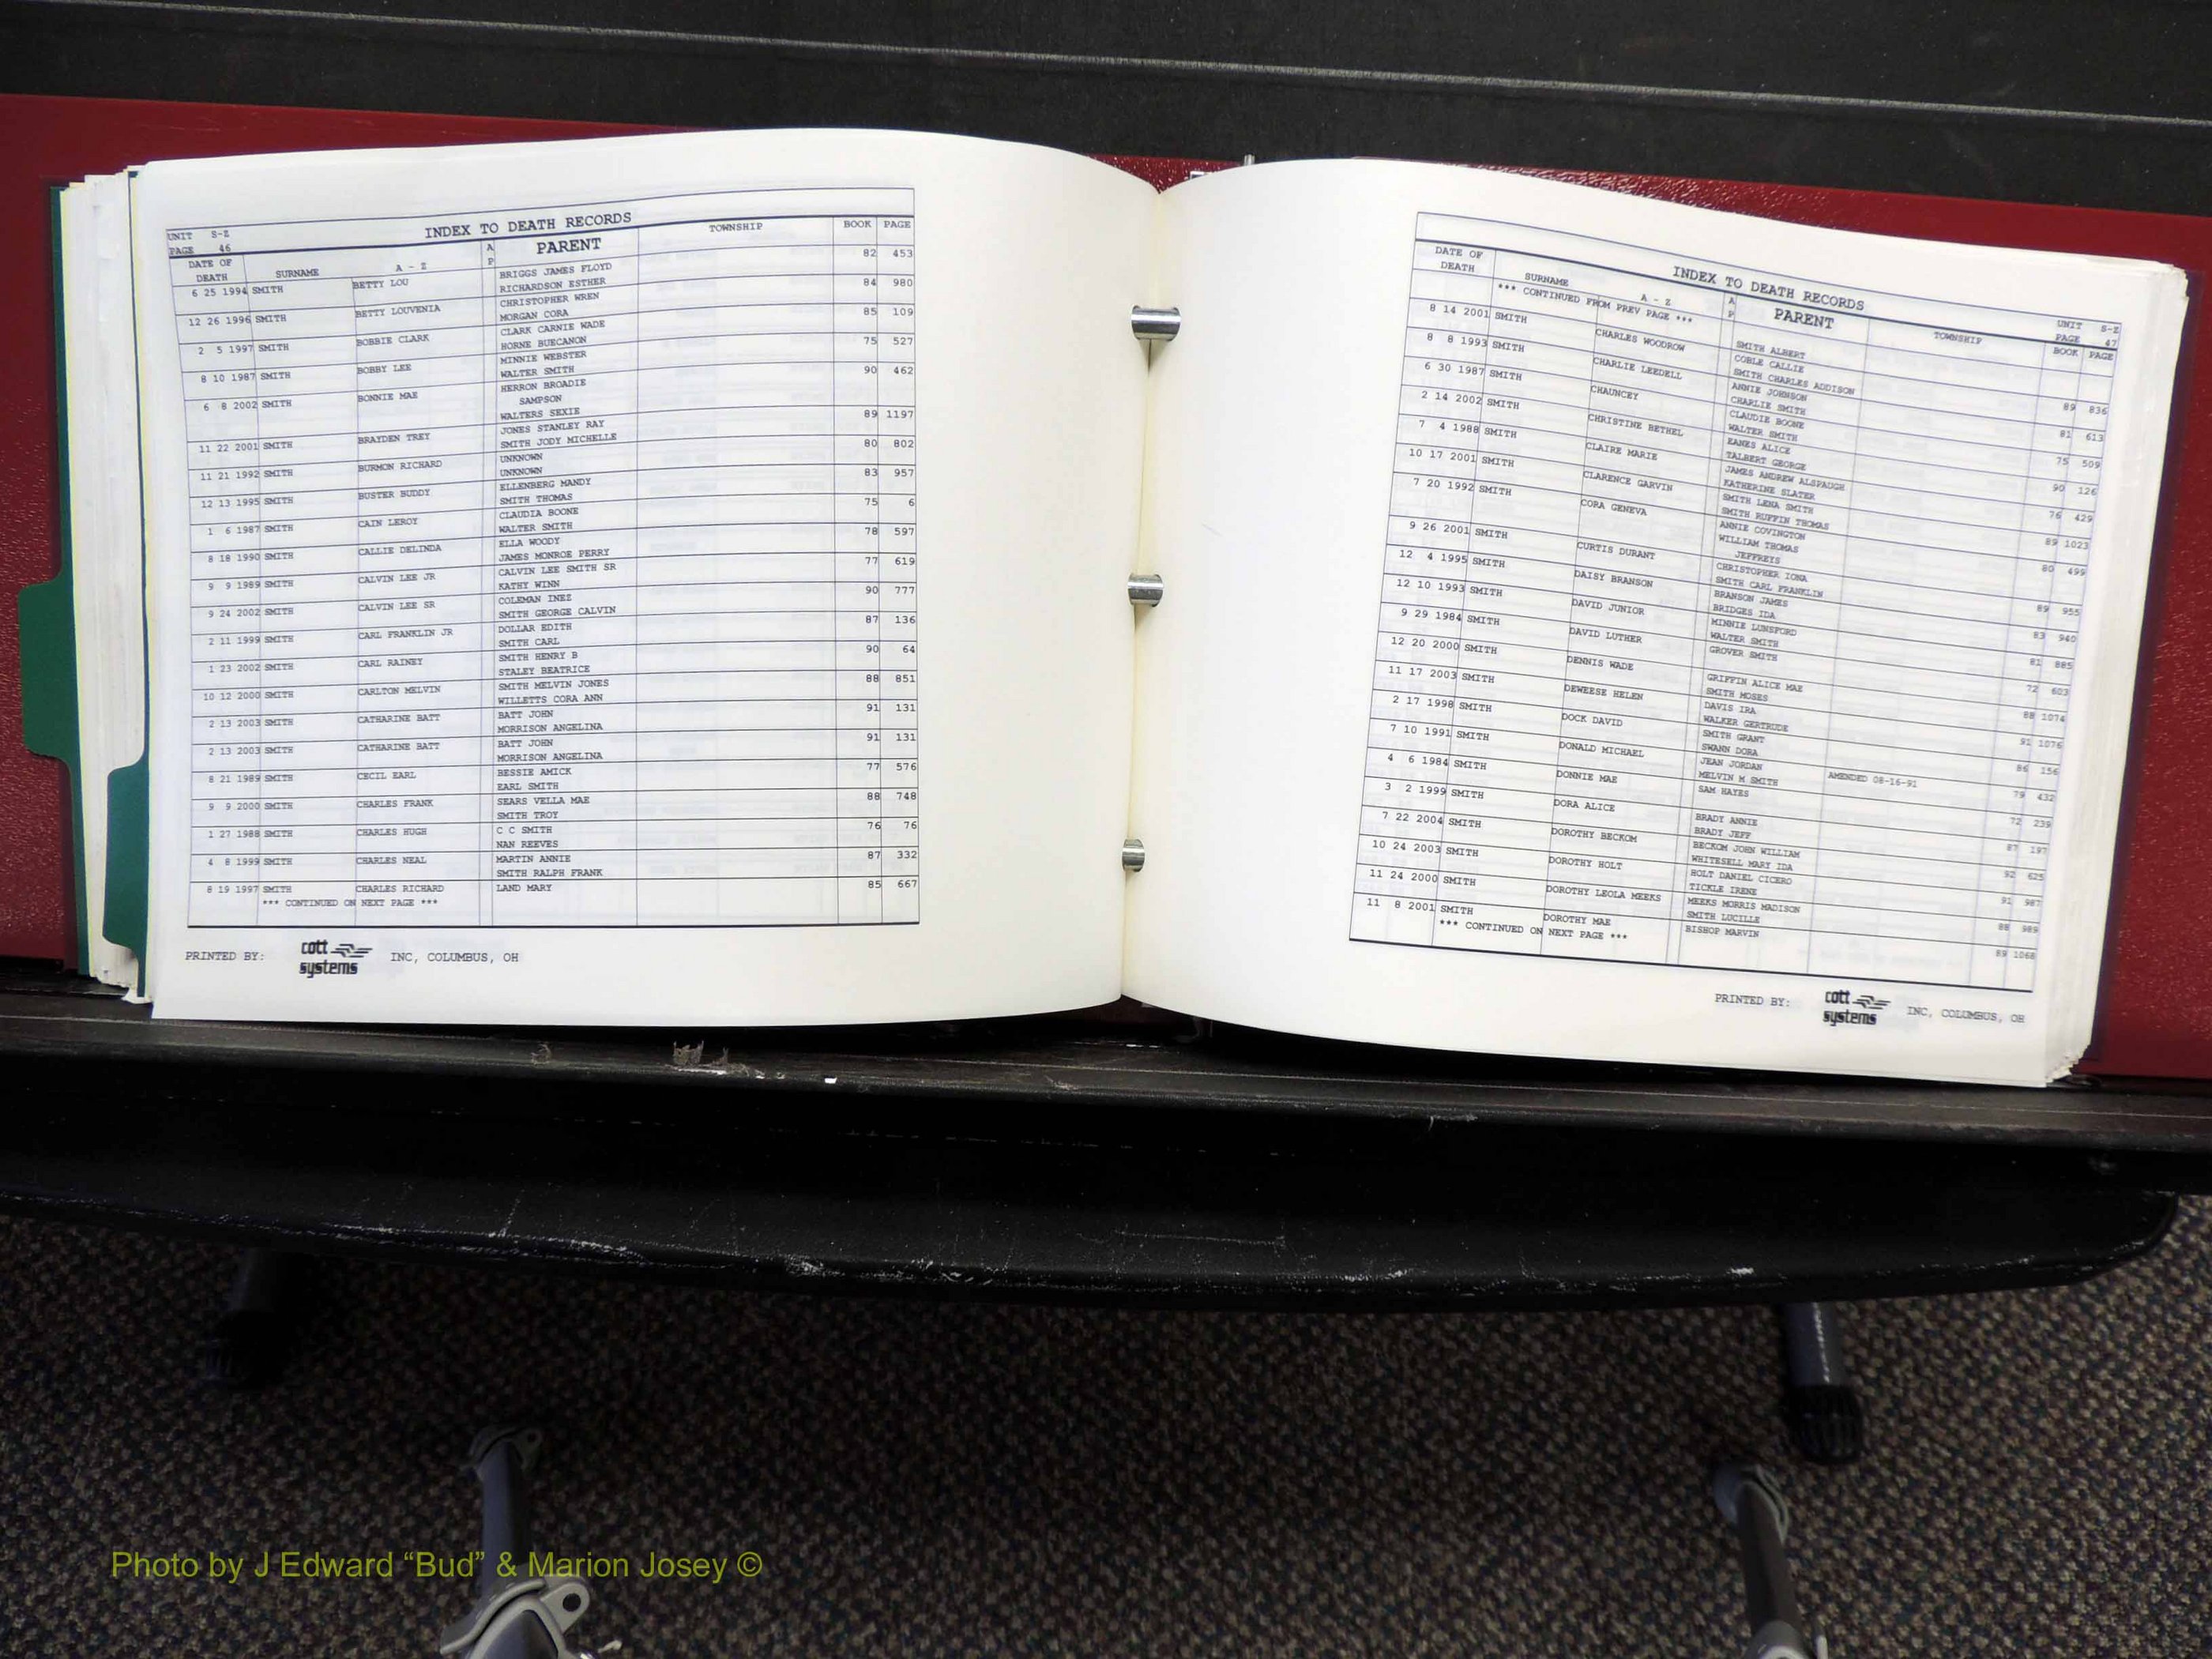 UNIT S-Z INDEX TO DEATH RECORDS
PAGE 46
DATE OF DEATH SURNAME A - Z A P PARENT TOWNSHIP BOOK PAGE
6 25 1994 SMITH BETTY LOU BRIGGS JAMES FLOYD 82 453
RICHARDSON ESTHER
12 26 1996 SMITH BETTY LOUVENIA CHRISTOPHER WREN 84 980
MORGAN CORA
2 5 1997 SMITH BOBBIE CLARK CLARK CARNIE WADE 85 109
HORNE BUECANON
8 10 1987 SMITH BOBBY LEE MINNIE WEBSTER 75 527
WALTER SMITH
6 8 2002 SMITH BONNIE MAE HERRON BROADIE 90 462
SAMPSON
WALTERS SEXIE
11 22 2001 SMITH BRAYDEN TREY JONES STANLEY RAY 89 1197
SMITH JODY MICHELLE
11 21 1992 SMITH BURMON RICHARD UNKNOWN 80 802
UNKNOWN
12 13 1995 SMITH BUSTER BUDDY ELLENBERG MANDY 83 957
SMITH THOMAS
1 6 1987 SMITH CAIN LEROY CLAUDIA BOONE 75 6
WALTER SMITH
8 18 1990 SMITH CALLIE DELINDA ELLA WOODY 78 597
JAMES MONROE PERRY
9 9 1989 SMITH CALVIN LEE JR CALVIN LEE SMITH SR 77 619
KATHY WINN
9 24 2002 SMITH CALVIN LEE SR COLEMAN INEZ 90 777
SMITH GEORGE CALVIN
2 11 1999 SMITH CARL FRANKLIN JR DOLLAR EDITH 87 136
SMITH CARL
1 23 2002 SMITH CARL RAINEY SMITH HENRY B 90 64
STALEY BEATRICE
10 12 2000 SMITH CARLTON MELVIN SMITH MELVIN JONES 88 851
WILLETTS CORA ANN
2 13 2003 SMITH CATHARINE BATT BATT JOHN 91 131
MORRISON ANGELINA
2 13 2003 SMITH CATHARINE BATT BATT JOHN 91 131
MORRISON ANGELINA
8 21 1989 SMITH CECIL EARL BESSIE AMICK 77 576
EARL SMITH
9 9 2000 SMITH CHARLES FRANK SEARS VELLA MAE 88 748
SMITH TROY
1 27 1988 SMITH CHARLES HUGH C C SMITH 76 76
NAN REEVES
4 8 1999 SMITH CHARLES NEAL MARTIN ANNIE 87 332
SMITH RALPH FRANK
8 19 1997 SMITH CHARLES RICHARD LAND MARY 85 667
*** CONTINUED ON NEXT PAGE ***
PRINTED BY: cott systems INC, COLUMBUS, OH
INDEX TO DEATH RECORDS UNIT S-Z
PAGE 47
DATE OF DEATH SURNAME A - Z A P PARENT TOWNSHIP BOOK PAGE
*** CONTINUED FROM PREV PAGE ***
SMITH ALBERT
8 14 2001 SMITH CHARLES WOODROW COBLE CALLIE 89 836
SMITH CHARLES ADDISON
8 8 1993 SMITH CHARLIE LEEDELL ANNIE JOHNSON 81 613
CHARLIE SMITH
6 30 1987 SMITH CHAUNCEY CLAUDIE BOONE 75 509
WALTER SMITH
2 14 2002 SMITH CHRISTINE BETHEL EANES ALICE 90 126
TALBERT GEORGE
7 4 1988 SMITH CLAIRE MARIE JAMES ANDREW ALSPAUGH 76 429
KATHERINE SLATER
10 17 2001 SMITH CLARENCE GARVIN SMITH LENA SMITH 89 1023
SMITH RUFFIN THOMAS
7 20 1992 SMITH CORA GENEVA ANNIE COVINGTON 80 499
WILLIAM THOMAS
JEFFREYS
9 26 2001 SMITH CURTIS DURANT CHRISTOPHER IONA 89 955
SMITH CARL FRANKLIN
12 4 1995 SMITH DAISY BRANSON BRANSON JAMES 83 940
BRIDGES IDA
12 10 1993 SMITH DAVID JUNIOR MINNIE LUNSFORD 81 885
WALTER SMITH
9 29 1984 SMITH DAVID LUTHER GROVER SMITH 72 603
12 20 2000 SMITH DENNIS WADE GRIFFIN ALICE MAE 88 1074
SMITH MOSES
11 17 2003 SMITH DEWEESE HELEN DAVIS IRA 91 1076
WALKER GERTRUDE
2 17 1998 SMITH DOCK DAVID SMITH GRANT 86 156
SWANN DORA
7 10 1991 SMITH DONALD MICHAEL JEAN JORDAN AMENDED 08-16-91 79 432
MELVIN M SMITH
4 6 1984 SMITH DONNIE MAE SAM HAYES 72 239
3 2 1999 SMITH DORA ALICE BRADY ANNIE 87 197
BRADY JEFF
7 22 2004 SMITH DOROTHY BECKOM BECKOM JOHN WILLIAM 92 625
WHITESELL MARY IDA
10 24 2003 SMITH DOROTHY HOLT HOLT DANIEL CICERO 91 987
TICKLE IRENE
11 24 2000 SMITH DOROTHY LEOLA MEEKS MEEKS MORRIS MADISON 88 989
SMITH LUCILLE
11 8 2001 SMITH DOROTHY MAE BISHOP MARVIN 89 1068
*** CONTINUED ON NEXT PAGE ***
PRINTED BY: cott systems INC, COLUMBUS, OH
Photo by J Edward “Bud” & Marion Josey ©